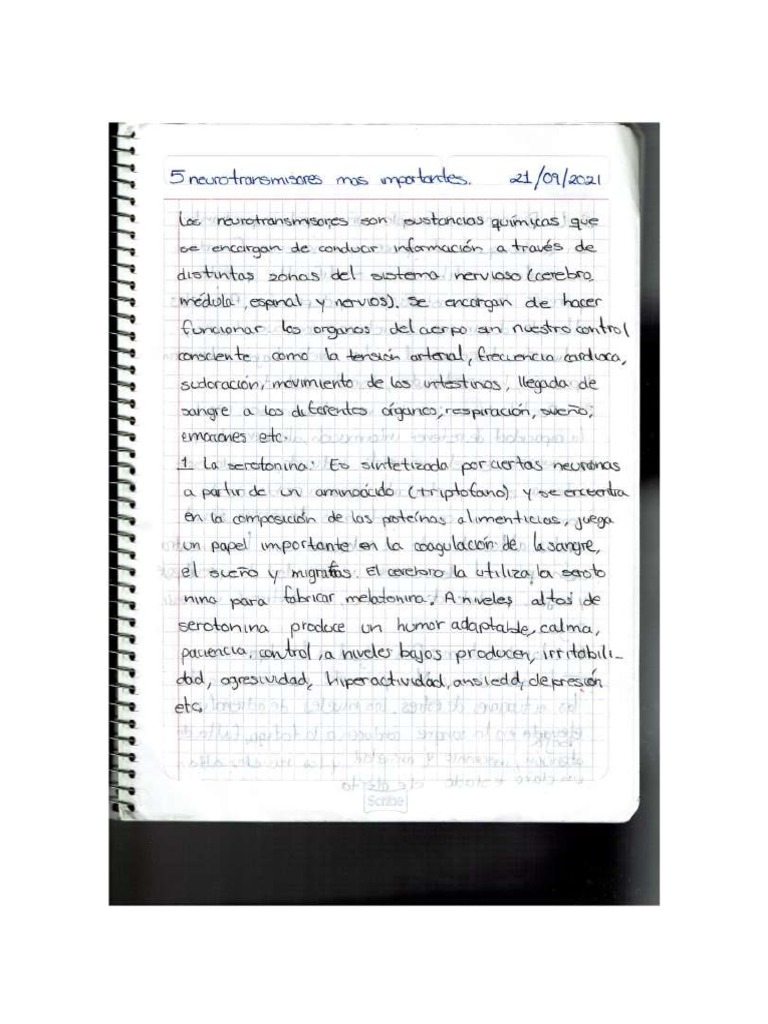 5 neurotransmisores mas importantes. 21/09/2021
Los neurotransmisores son sustancias químicas que
se encargan de conducir información a través de
distintas zonas del sistema nervioso (cerebro,
médula, espinal y nervios). Se encargan de hacer
funcionar los organos del cuerpo sin nuestro control
consciente como la tensión arterial, frecuencia cardiaca,
sudoración, movimiento de los intestinos, llegada de
sangre a los diferentes órganos, respiración, sueño,
emociones etc.
1. La serotonina: Es sintetizada por ciertas neuronas
a partir de un aminoácido (triptofano) y se encuentra
en la composición de las proteínas alimenticias, juega
un papel importante en la coagulación de la sangre,
el sueño y migrañas. El cerebro la utiliza, la seroto
nina para fabricar melatonina. A niveles altos de
serotonina produce un humor adaptable, calma,
paciencia, control, a niveles bajos producen, irritabili_
dad, agresividad, hiperactividad, ansiedd, depresión
etc.
Scribe